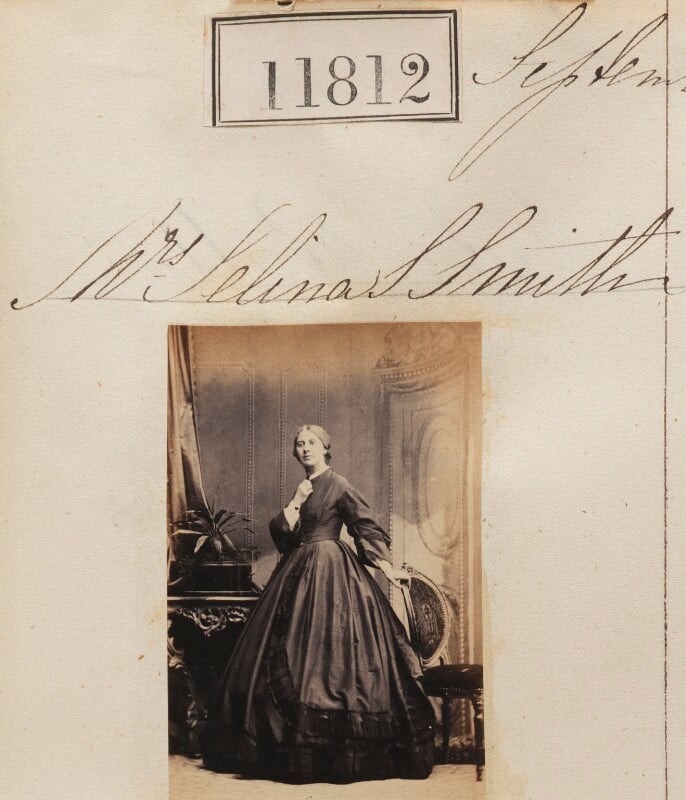 11812
Septem
Mrs Selina S Smith